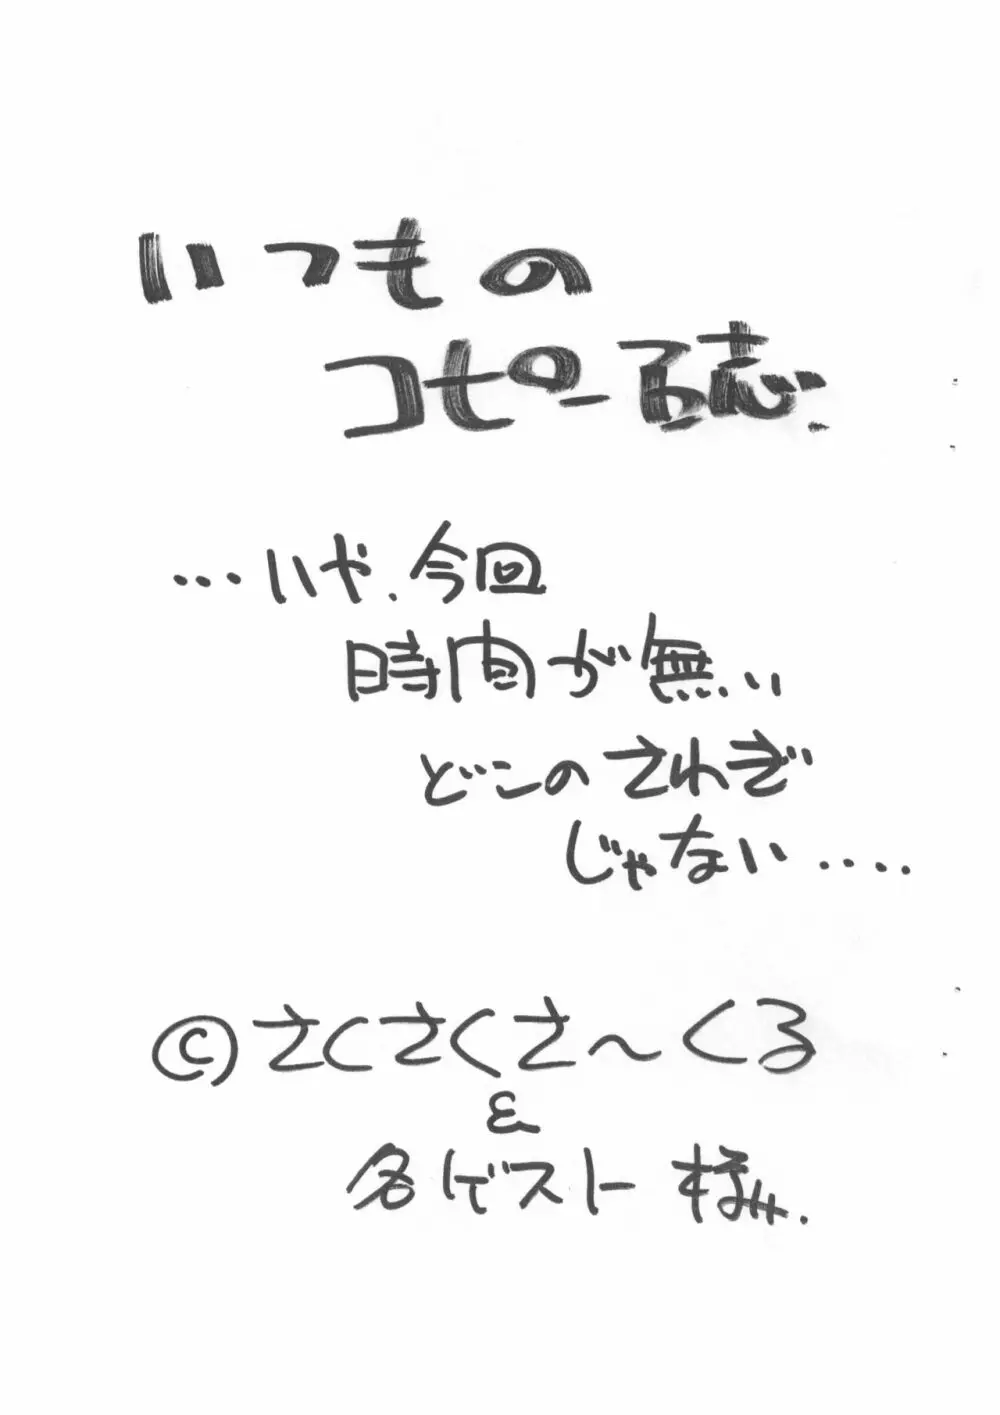 いつもの
コピー る志.
…いや.今回
時間が無い
どこのさわぎ
じゃない....
©さくさくさ～くる
&
各ゲスト様.